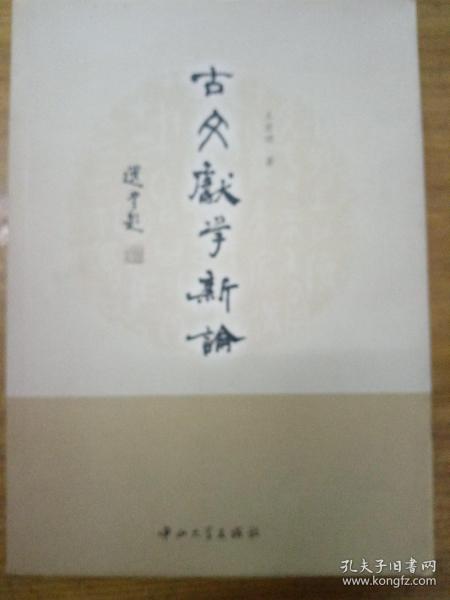 古文獻学新論
选堂題
著
中山大学出版社
孔夫子旧书网
www.kongfz.com